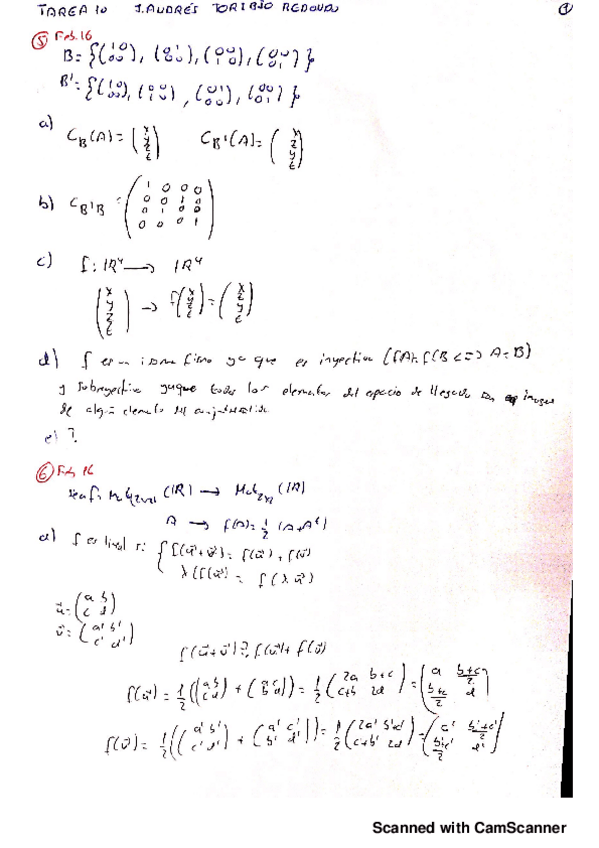 TAREA 10 J. ANDRÉS TORIBIO REDONDO 1
5 Feb. 16
B = {(1 0 0 0), (0 1 0 0), (0 0 1 0), (0 0 0 1)}
B' = {(1 0 0 0), (0 0 1 0), (0 1 0 0), (0 0 0 1)}
a) C_B(A) = (x y z t) C_B'(A) = (x z y t)
b) C_B'B = (1 0 0 0 0 0 1 0 0 1 0 0 0 0 0 1)
c) f: IR⁴ → IR⁴
(x y z t) → f(x y z t) = (x z y t)
d) f es un isomorfismo ya que es inyectiva (f(A) = f(B <=> A = B)
y subreyectiva yaque todos los elementos del espacio de llegada son imagen
de algún elemento del
e) ?
6 Feb 16
sea f: Mat₂ₓ₂ (IR) → Mat₂ₓ₂ (IR)
A → f(A) = 1/2 (A + Aᵗ)
a) f es lineal si: { f(u⃗+v⃗) = f(u⃗) + f(v⃗)
λ(f(u⃗) = f(λu⃗)
u⃗ = (a b c d)
v⃗ = (a' b' c' d')
f(u⃗+v⃗) ?= f(u⃗) + f(v⃗)
f(u⃗) = 1/2 ((a b c d) + (a c b d)) = 1/2 (2a b+c c+b 2d) = (a b+c/2 b+c/2 d)
f(v⃗) = 1/2 ((a' b' c' d') + (a' c' b' d')) = 1/2 (2a' b'+c' c'+b' 2d) = (a' b'+c'/2 b'+c'/2 d')
Scanned with CamScanner